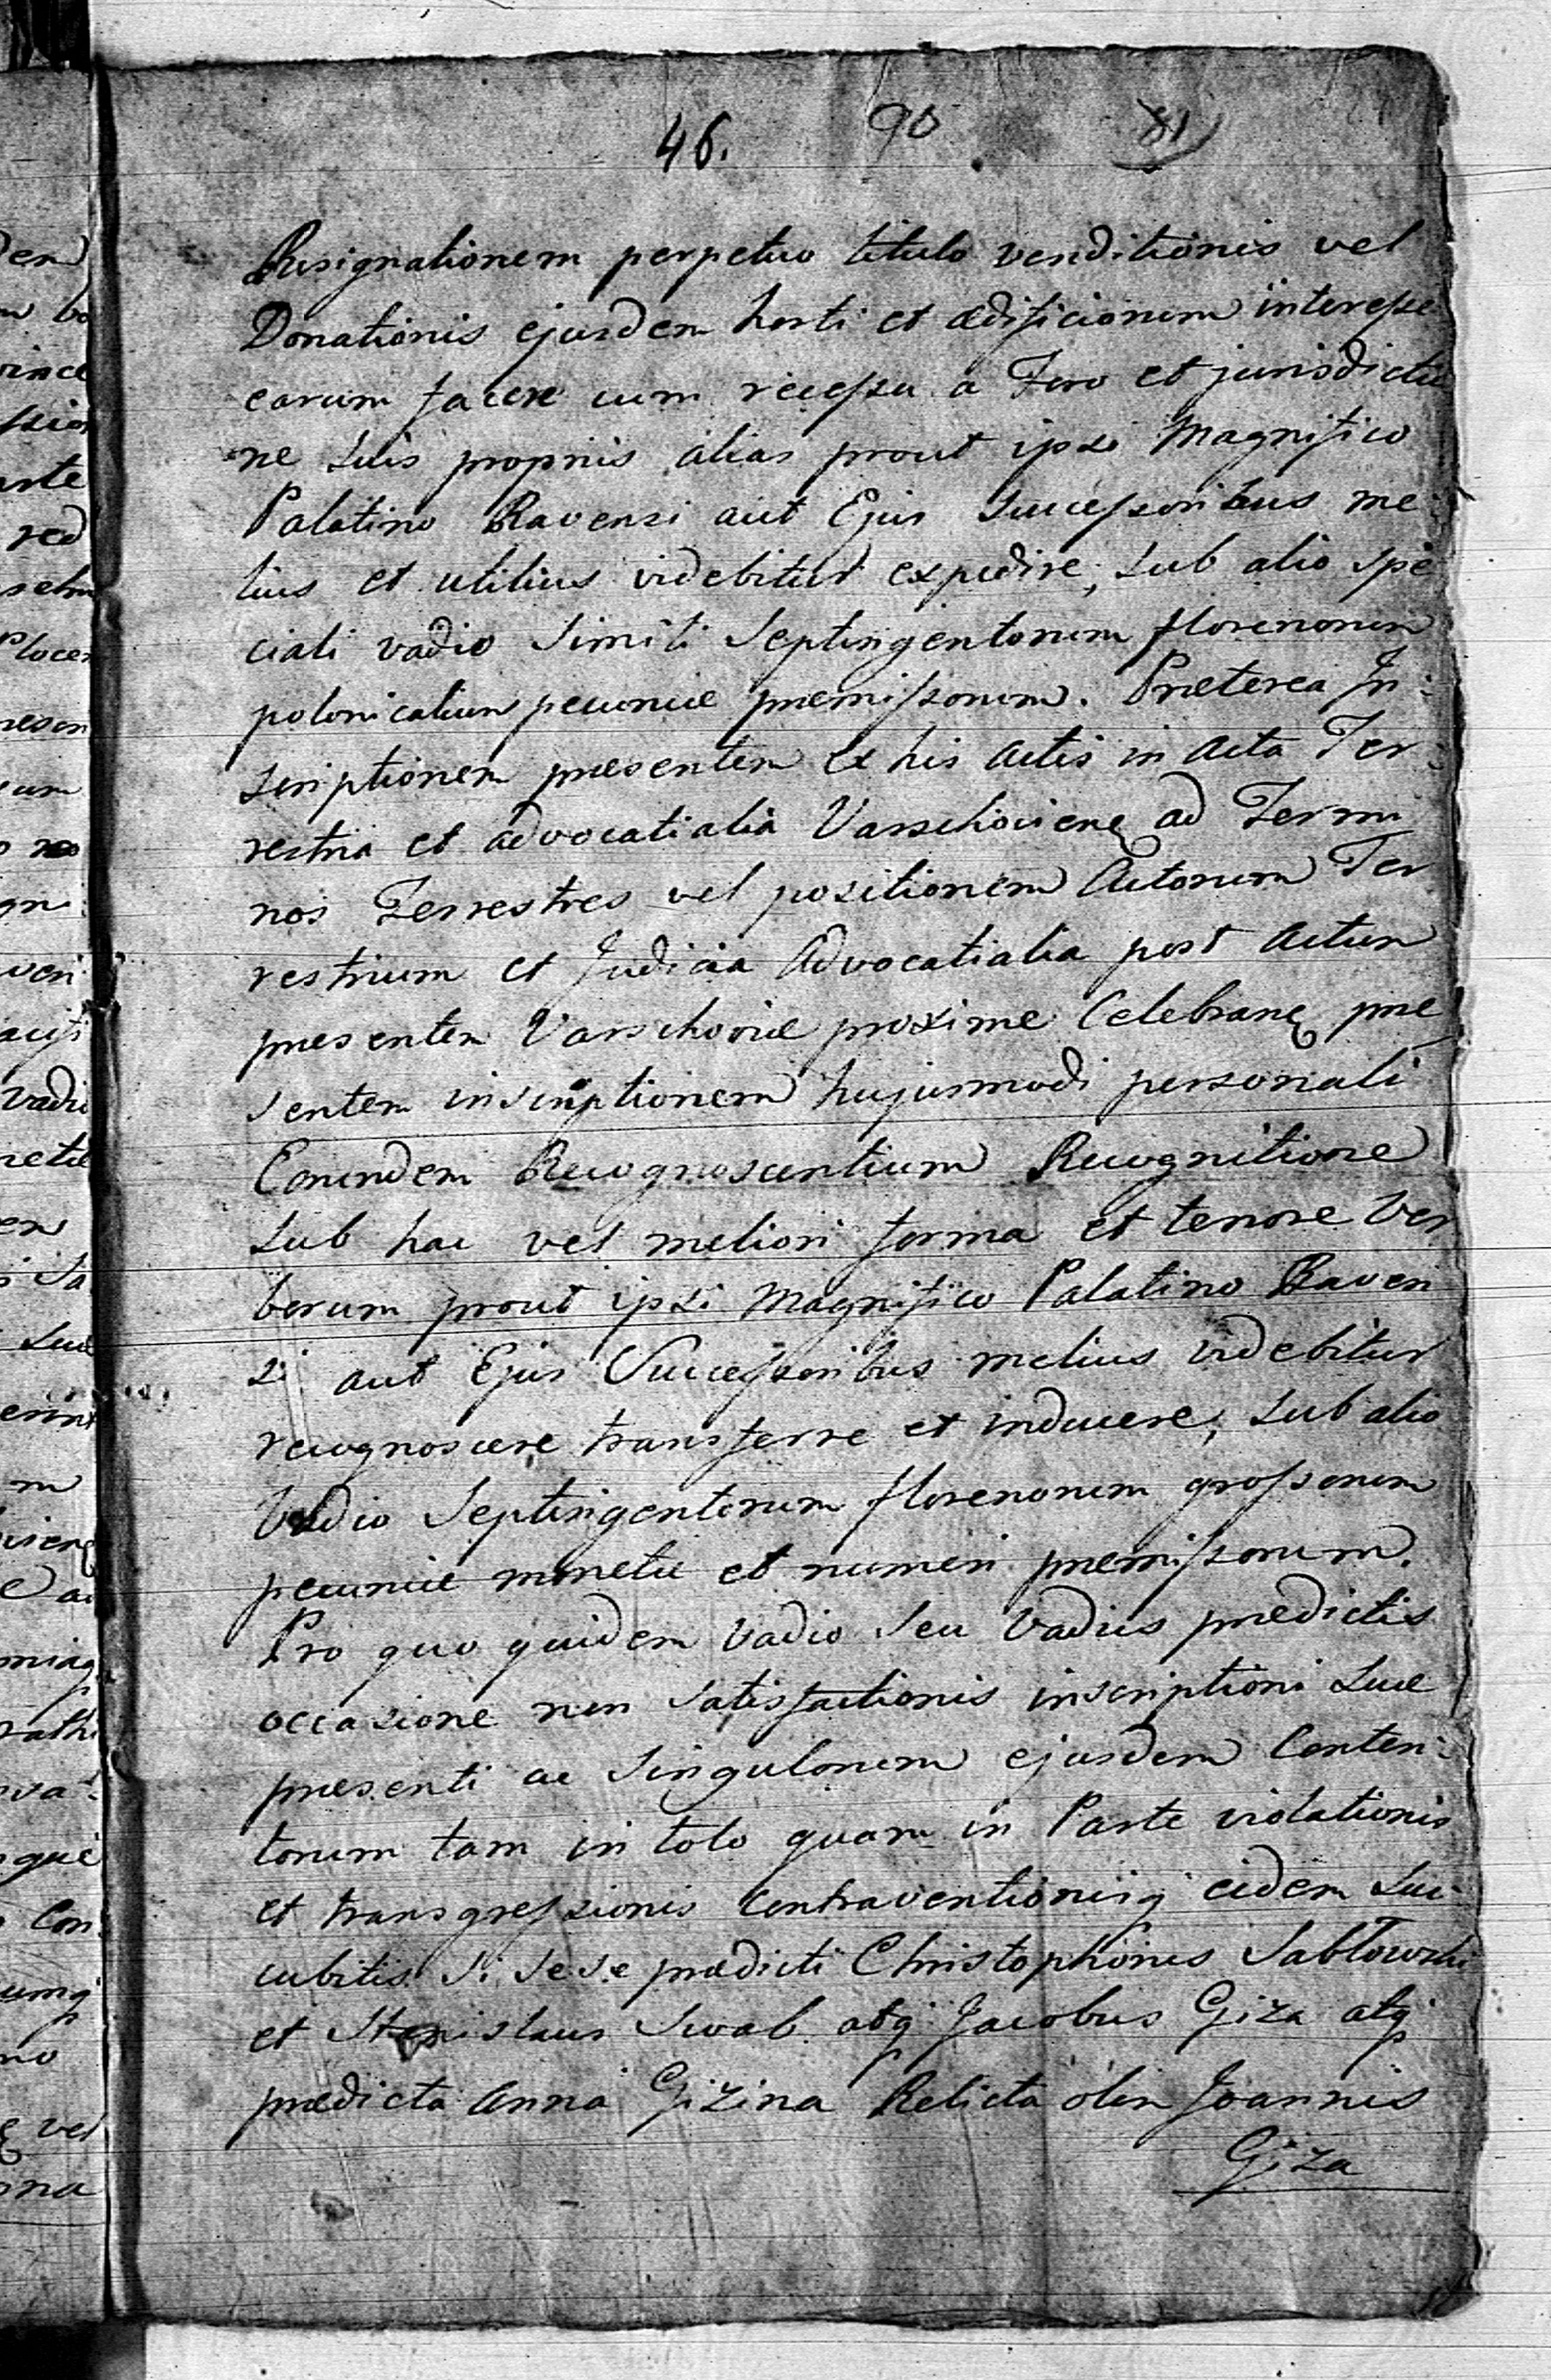 46. 90 81
Resignationem perpetuo titulo venditionis vel
Donationis ejusdem horti et ædificiorum interesse
earum facere cum recessu a Foro et jurisdictio
ne suis propriis alias prout ipsi Magnifico
Palatino Ravensi aut Ejus Successoribus me:
lius et utilius videbitur expedire, sub alio spe
ciali vadio simili Septingentorum florenorum
polonicalium pecuniæ præmissorum. Præterea In:
scriptionem præsentem ex his actis in acta Ter:
restria et advocatialia Varschovien ad Termi
nos Terrestres vel positionem Actorum Ter
restrium et Judicia Advocatialia post actum
præsentem Varschoviæ proxime Celebran præ
sentem inscriptionem hujusmodi personali
Eorundem Recognoscentium Recognitione
sub hac vel meliori forma et tenore Ver
borum prout ipsi Magnifico Palatino Raven
si aut Ejus Successoribus melius videbitur
recognoscere transferre et inducere, sub alio
Vadio Septingentorum florenorum grossorum
pecuniæ monetæ et numeri præmissorum.
Pro quo quidem Vadio seu Vadiis prædictis
occasione non satisfactionis inscriptioni suæ
præsenti ac singulorum ejusdem Conten:
torum tam in toto quam in Parte violationis
et transgressionis contraventionisq eidem suc
cubitis si sese prædicti Christophorus Jabłowski
et Stanislaus Swab atq Jacobus Giza atq
prædicta Anna Gizina Relicta olim Joannis
Giza